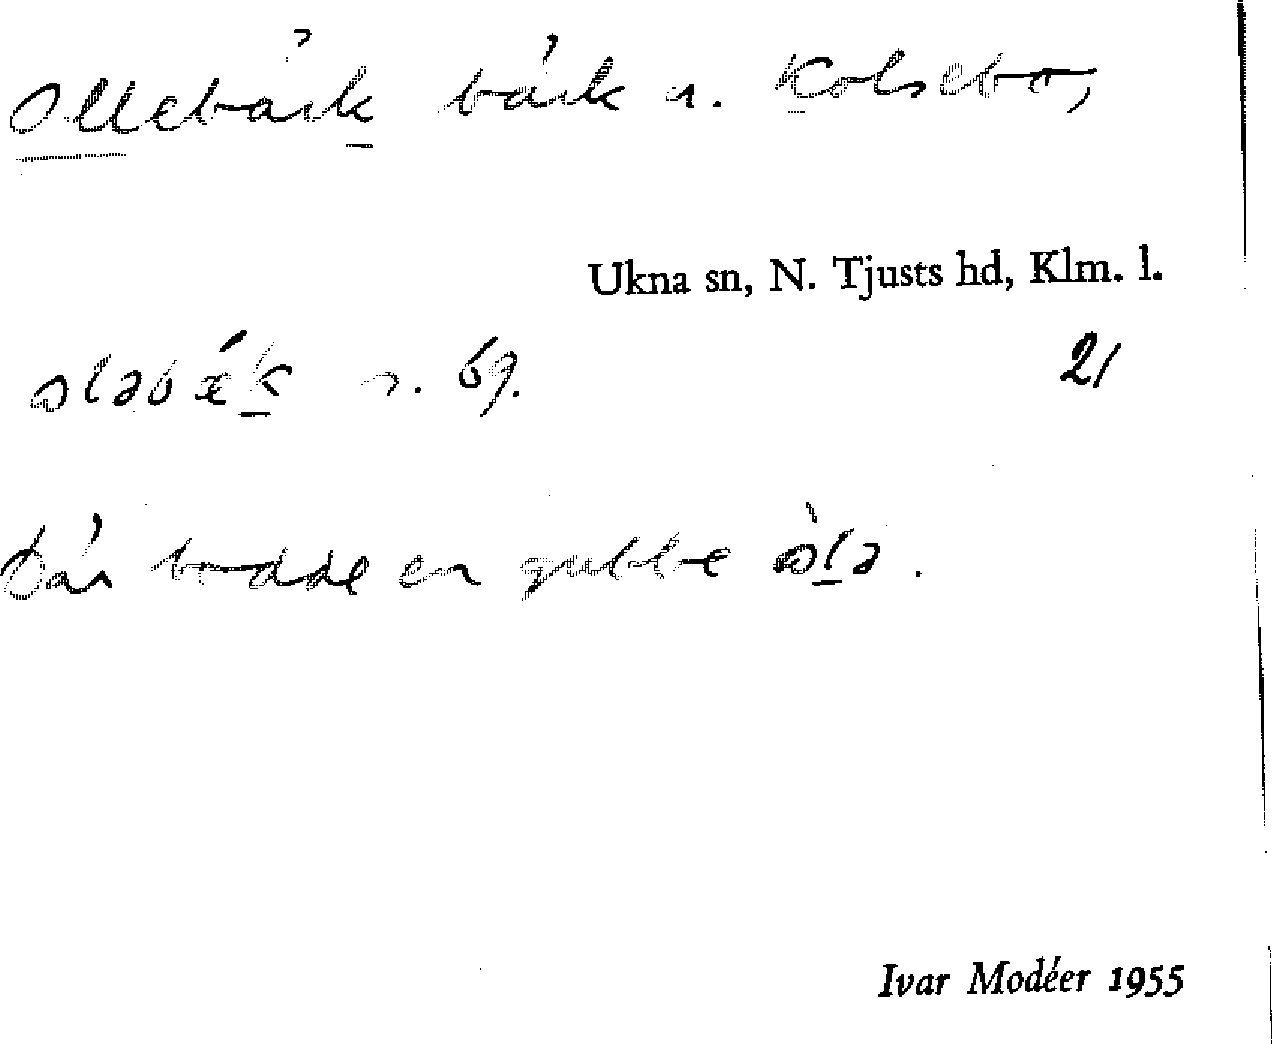 Ollebäck bäck n. Kolsebo,
Ukna sn, N. Tjusts hd, Klm. l.
ɷləbǽk n. 69. 21
Där bodde en gubbe ɷ̀lə.
Ivar Modéer 1955